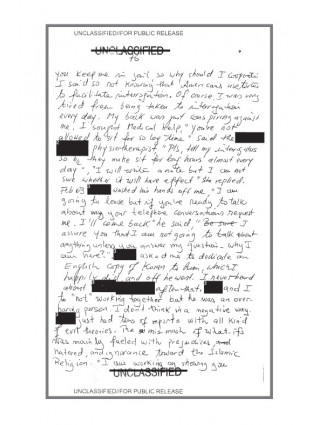 UNCLASSIFIED//FOR PUBLIC RELEASE
UNCLASSIFIED
you keep me in jail, so why should I cooperate
I said so not knowing that Americans use torture
to facilitate interrogation. Of course, I was very
tired from being taken to interrogation
every day. My back was just conspiring against
me. I sought Medical help, "you're not
allowed to sit for so long time" said the
physiotherapist "Pls, tell my interrogators
so bc they make sit for long hours almost every
day", "I will write a note but I am not
sure whether it will have effect" She replied.
Feb 03 washed his hands off me, "I am
going to leave but if you're ready to talk
about my your telephone conversations request
me, I'll come back" he said, "Be sure I
assure you that I am not going to talk about
anything unless you answer my question. why I
am here?" asked me to dedicate an
English copy of Koran to him, which I
happily did and off he went. I never heard
about after that, and I
to "not" working together but he was an over-
person. I don't think in a negative way.
just had tons of reports with all kind
of evil theories. The mismash of what ifs
was mainly fueled with prejudices and
hatred, and ignorance toward the Islamic
Religion. "I am working on showing you
UNCLASSIFIED
UNCLASSIFIED//FOR PUBLIC RELEASE